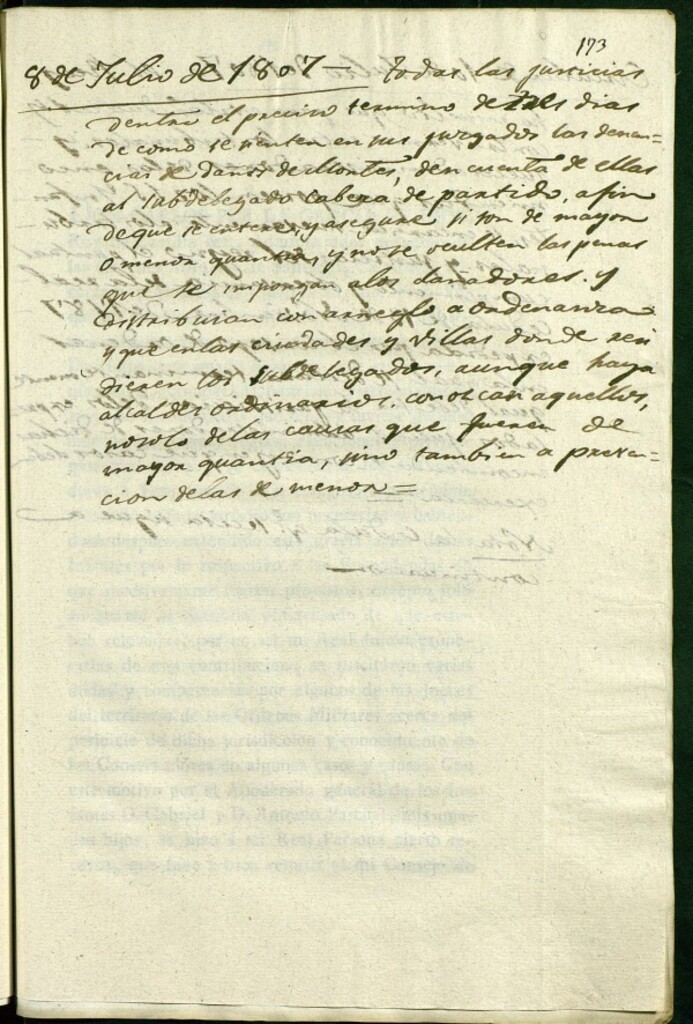 173
8 de Julio de 1807 — todas las justicias
dentro el preciso termino de tres dias
de como se sienten en sus juzgados las denun=
cias de daños de Montes, den cuenta de ellas
al subdelegado cabeza de partido, a fin
de que se entere, y asegure si son de mayor
o menor quantia, y no se oculten las penas
que se impongan alos dañadores. y
distribuian con arreglo a ordenanza
y que enlas ciudades y villas donde resi
dieren los subdelegados, aunque haya
alcaldes ordinarios. conozcan aquellos,
nosolo delas causas que fueren de
mayor quantia, sino tambien a preven=
cion delas de menor=